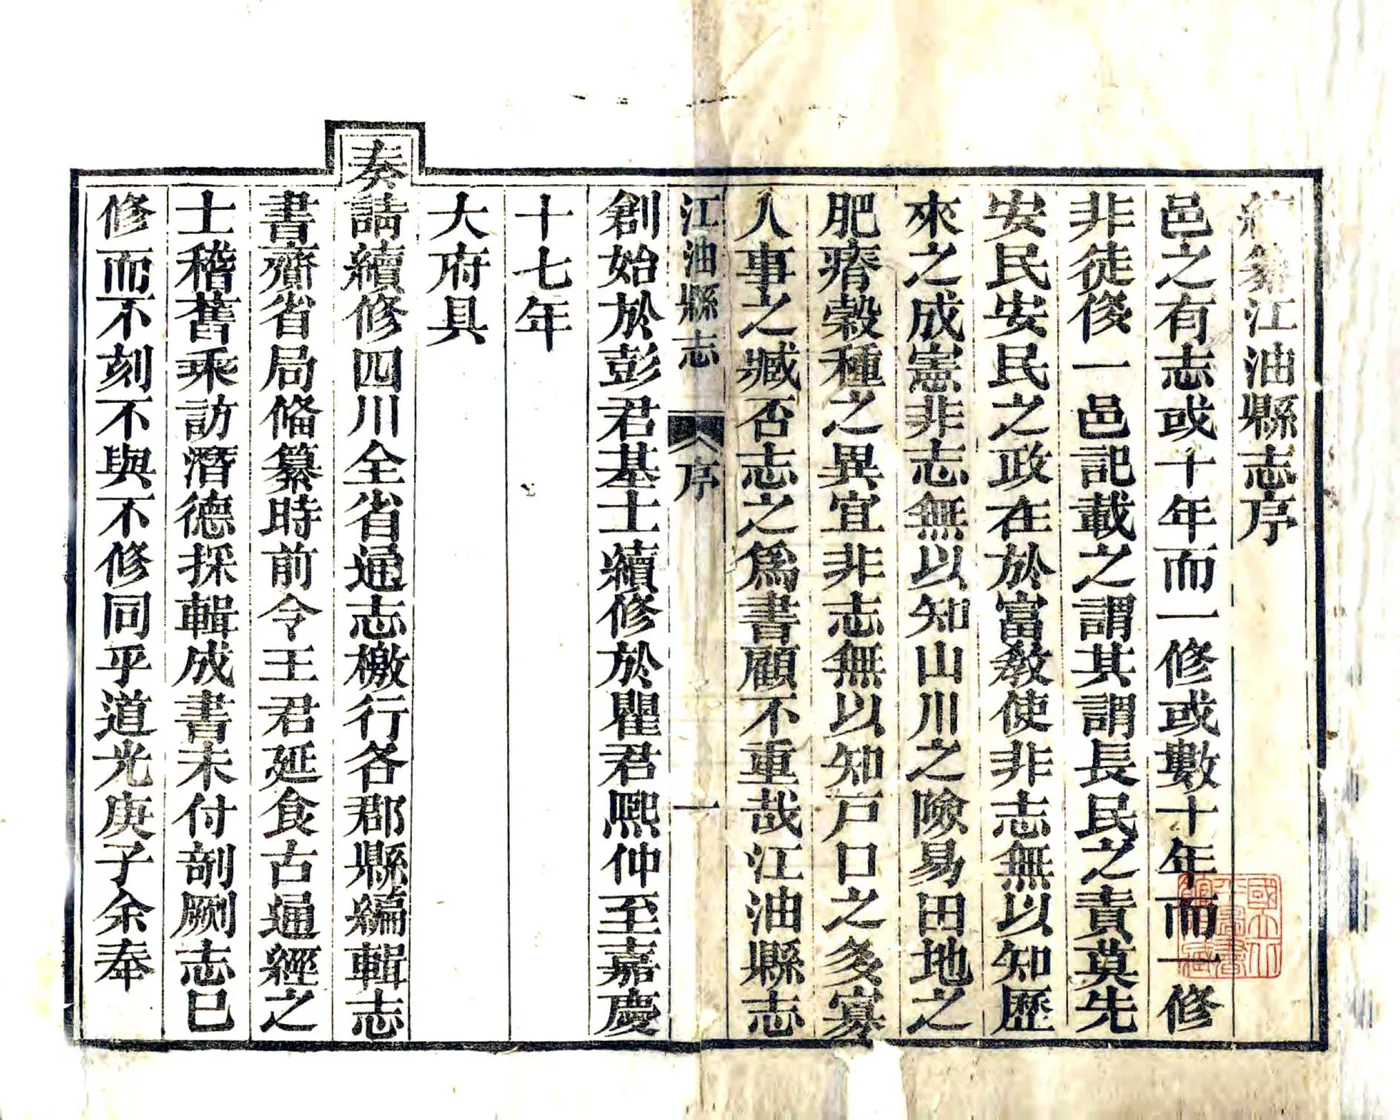 續纂江油縣志序
邑之有志或十年而一修或數十年而一修
非徒俻一邑記載之謂其謂長民之責莫先
安民安民之政在於富教使非志無以知歷
來之成憲非志無以知山川之險易田地之
肥瘠穀種之異宜非志無以知戸口之多寡
人事之臧否志之爲書顧不重哉江油縣志
江油縣志 序 一
創始於彭君基士續修於瞿君熈仲至嘉慶
十七年
大府具
奏請續修四川全省通志檄行各郡縣編輯志
書齎省局俻纂時前令王君延食古通經之
士稽舊乘訪潛德採輯成書未付剞劂志已
修而不刻不與不修同乎道光庚子余奉